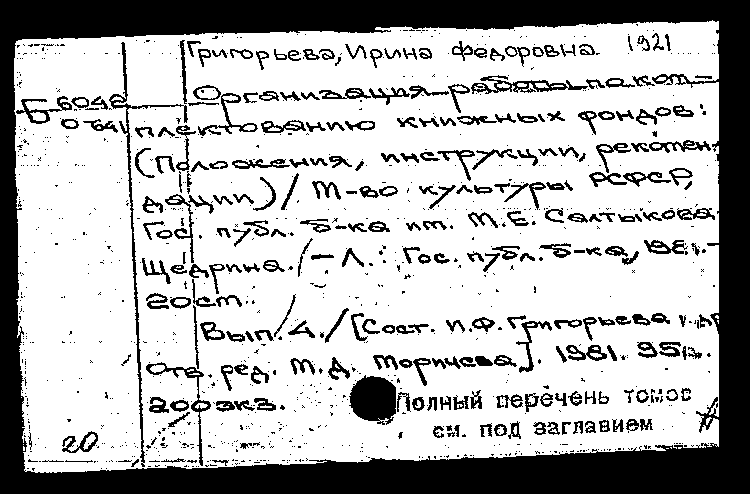 Григорьева, Ирина Федоровна 1921
Организация работы по ком-
Б 6048
0-641
плектованию книжных фондов:
(Положения, инструкции, рекомен-
дации) / М-во культуры РСФСР,
Гос. публ. б-ка им. М.Е. Салтыкова-
Щедрина. - Л.: Гос. публ. б-ка, 1981.-
20 см.
Вып. 4. / [Сост. И.Ф. Григорьева и др.
Отв. ред. М.Д. Моричева]. 1981. 95 с.
200 экз.
Полный перечень томов
см. под заглавием
20